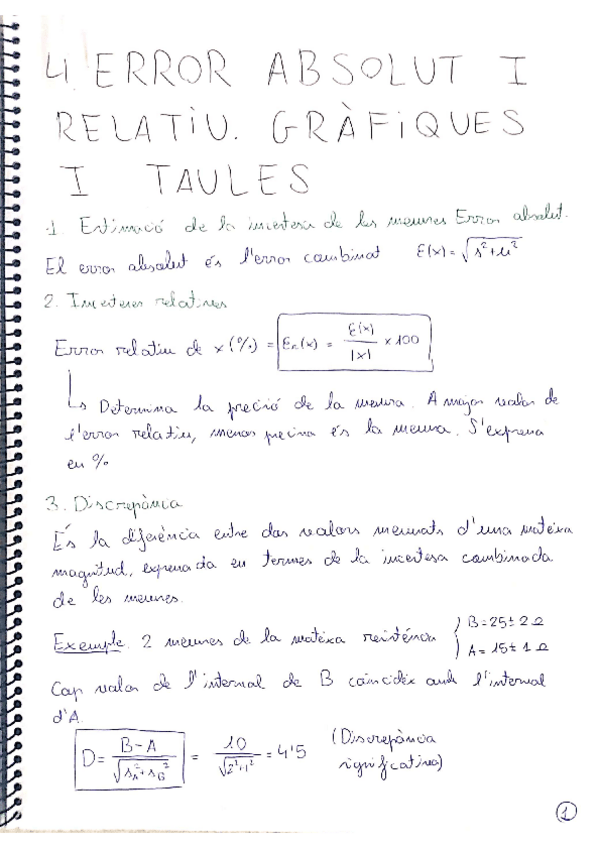 4. ERROR ABSOLUT I
RELATIU. GRÀFIQUES
I TAULES
1. Estimació de la incertesa de les mesures Error absolut.
El error absolut és l'error combinat E(x) = √s²+u²
2. Incerteses relatives
Error relatiu de x (%) = Er(x) = E(x) / |x| × 100
↳ Determina la preció de la mesura. A major valor de
l'error relatiu, menys precisa és la mesura. S'expressa
en %
3. Discrepància
És la diferència entre dos valors mesurats d'una mateixa
magnitud, expressada en termes de la incertesa combinada
de les mesures.
Exemple. 2 mesures de la mateixa resistència } B = 25 ± 2 Ω
A = 15 ± 1 Ω
Cap valor de l'interval de B coincideix amb l'interval
d'A
D = B-A / √sA²+sB² = 10 / √2²+1² = 4'5 (Discrepància
significativa)
1